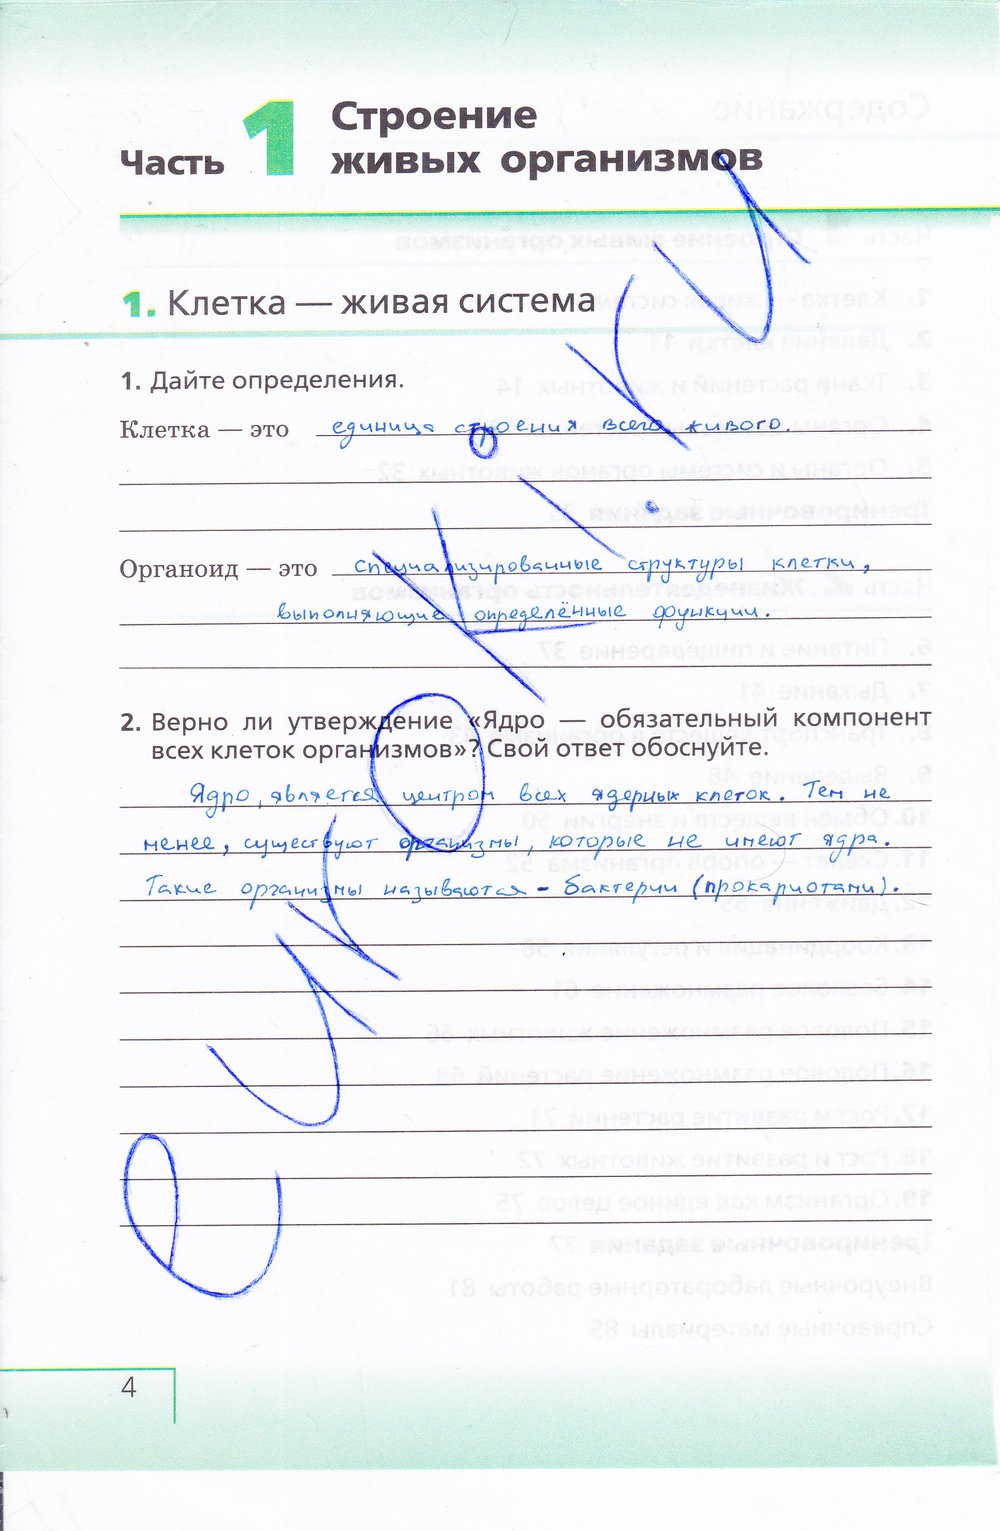 Часть 1 Строение
живых организмов
1. Клетка — живая система
1. Дайте определения.
Клетка — это единица строения всего живого.
Органоид — это специализированные структуры клетки,
выполняющие определённые функции.
2. Верно ли утверждение «Ядро — обязательный компонент
всех клеток организмов»? Свой ответ обоснуйте.
Ядро, является центром всех ядерных клеток. Тем не
менее, существуют организмы, которые не имеют ядра.
Такие организмы называются - бактерии (прокариотами).
еуроки.ки
4